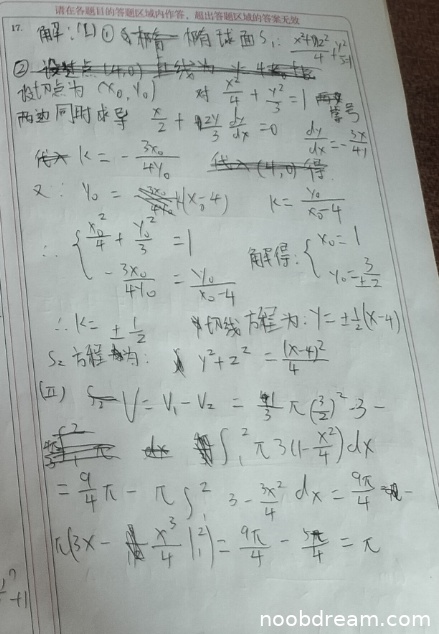 请在各题目的答题区域内作答，超出答题区域的答案无效
17. 解：(I) ① 椭球面S₁: (x²)/4 + (y²+z²)/3 = 1
设切点为 (x₀, y₀) 对 x²/4 + y²/3 = 1
两边同时求导 x/2 + 2y/3 dy/dx = 0 dy/dx = -3x/4y
k = -3x₀/4y₀
又∵ y₀ = k(x₀-4) k = y₀/(x₀-4)
∴ { x₀²/4 + y₀²/3 = 1
-3x₀/4y₀ = y₀/(x₀-4)
解得: { x₀ = 1
y₀ = ±3/2
∴ k = ±1/2 切线方程为: y = ±1/2(x-4)
S₂方程为: y²+z² = (x-4)²/4
(II) V = V₁ - V₂ = 1/3 π (3/2)²·3 -
∫₁² π 3(1 - x²/4) dx
= 9/4 π - π ∫₁² 3 - 3x²/4 dx = 9π/4 -
π(3x - x³/4 |₁²) = 9π/4 - 5π/4 = π
noobdream.com